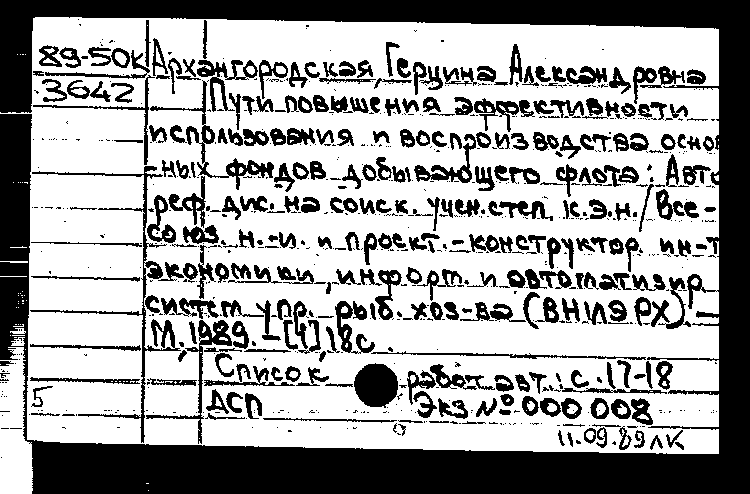 89-50к Архангородская, Герцина Александровна
3642 Пути повышения эффективности
использования и воспроизводства основ
-ных фондов добывающего флота: Авто
реф. дис. на соиск. учен. степ. к.э.н. / Все-
союз. н.-и. и проект.-конструктор. ин-т
экономики, информ. и автоматизир.
систем упр. рыб. хоз-ва (ВНИЭРХ). —
М., 1989. - [4] 18с.
Список работ авт.: с. 17-18
5 ДСП Экз № 000 008
11.09.89 лк